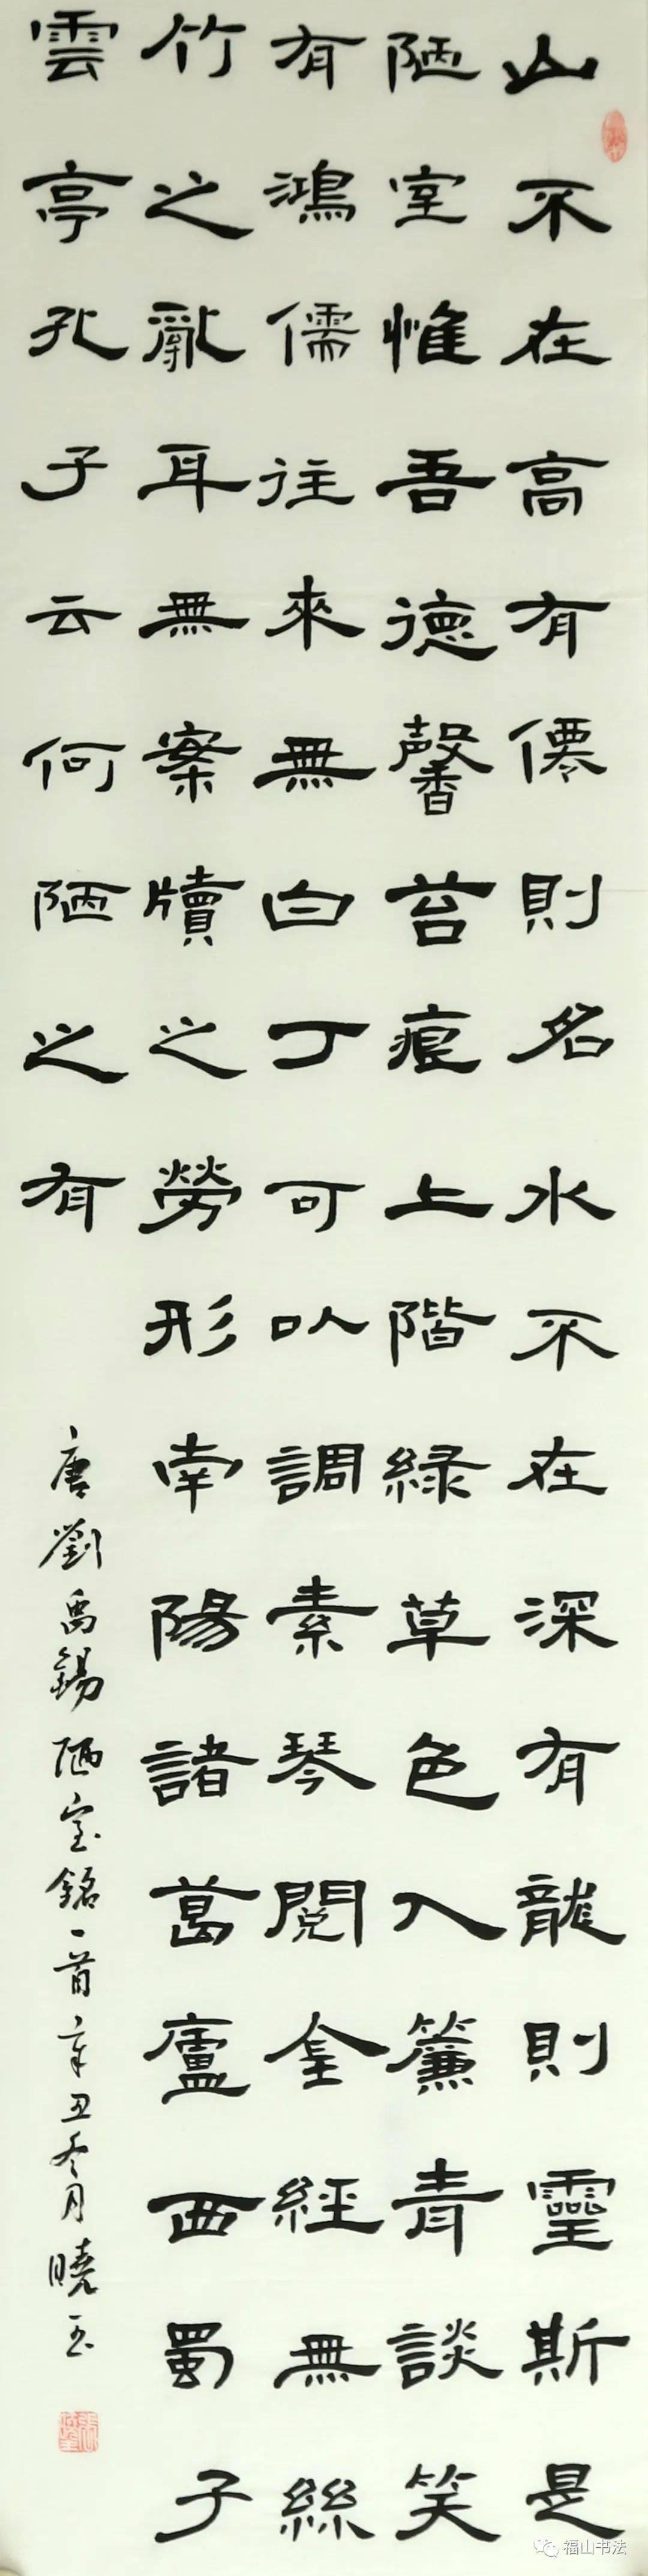 山不在高有僊則名水不在深有龍則靈斯是
陋室惟吾德馨苔痕上階綠草色入簾青談笑
有鴻儒往來無白丁可㕥調素琴閱金經無絲
竹之亂耳無案牘之勞形南陽諸葛廬西蜀子
雲亭孔子云何陋之有
唐劉禹錫陋室銘一首辛丑冬月曉玉
福山书法